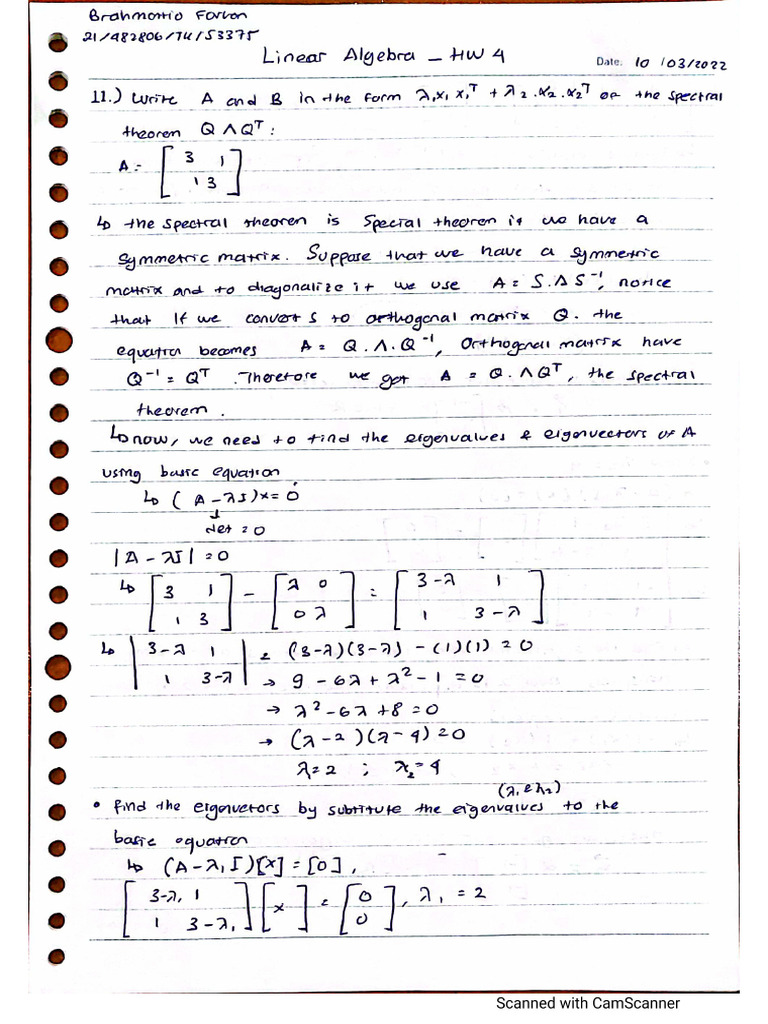 Brahmantio Farvon
21/482806/TK/53375
Linear Algebra - HW 4
Date: 10 / 03/2022
11.) Write A and B in the form λ₁x₁ x₁ᵀ + λ₂.x₂.x₂ᵀ of the spectral
theorem Q Λ Qᵀ :
A = [3 1
1 3]
↳ the spectral theorem is special theorem if we have a
symmetric matrix. Suppose that we have a symmetric
matrix and to diagonalize it we use A = S.Λ S⁻¹, notice
that if we convert S to orthogonal matrix Q. the
equation becomes A = Q.Λ.Q⁻¹, Orthogonal matrix have
Q⁻¹ = Qᵀ. Therefore we got A = Q.ΛQᵀ, the spectral
theorem.
↳ now, we need to find the eigenvalues & eigenvectors of A
using basic equation
↳ (A - λI)x = 0
↓
det = 0
|A - λI| = 0
↳ [3 1
1 3] - [λ 0
0 λ] = [3-λ 1
1 3-λ]
↳ |3-λ 1
1 3-λ| = (3-λ)(3-λ) - (1)(1) = 0
→ 9 - 6λ + λ² - 1 = 0
→ λ² - 6λ + 8 = 0
→ (λ-2)(λ-4) = 0
λ = 2 ; λ₂ = 4
(λ₁ & λ₂)
• find the eigenvectors by substitute the eigenvalues to the
basic equation
↳ (A - λ₁ I)[x] = [0],
[3-λ₁ 1
1 3-λ₁] [x] = [0
0], λ₁ = 2
Scanned with CamScanner